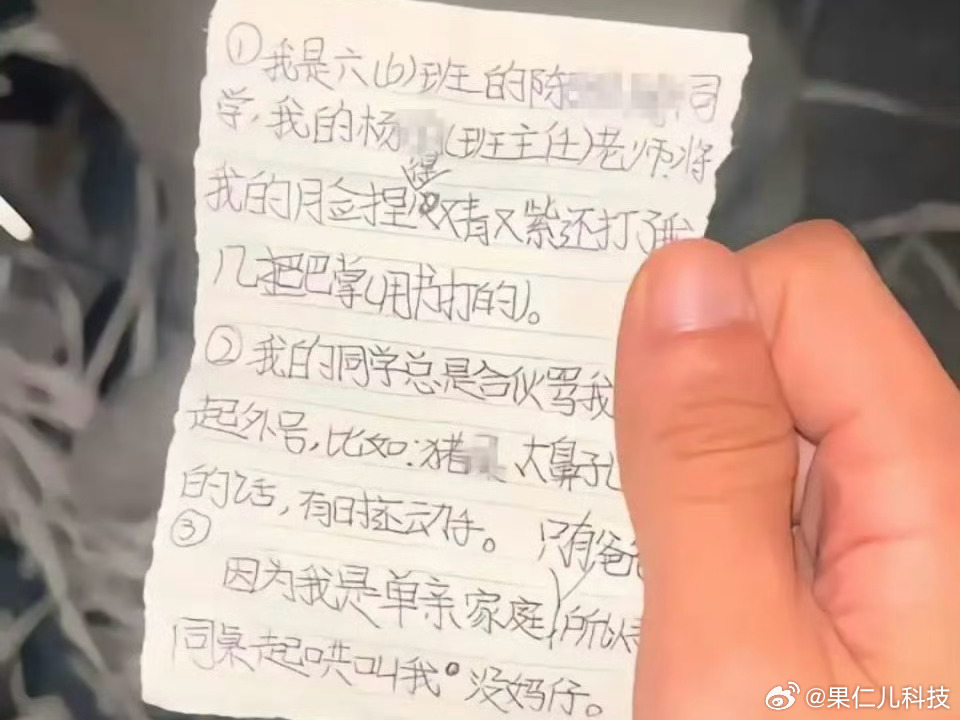 ①我是六(6)班的陈 同
学,我的杨 (班主任)老师将
我的脸捏得又青又紫还打了我
几把巴掌(用书打的)。
②我的同学总是合伙骂我
起外号,比如:猪 、大鼻子
的话,有时还动手。
③
只有爸爸
因为我是单亲家庭 所以
同桌起哄叫我 没妈仔。
@果仁儿科技